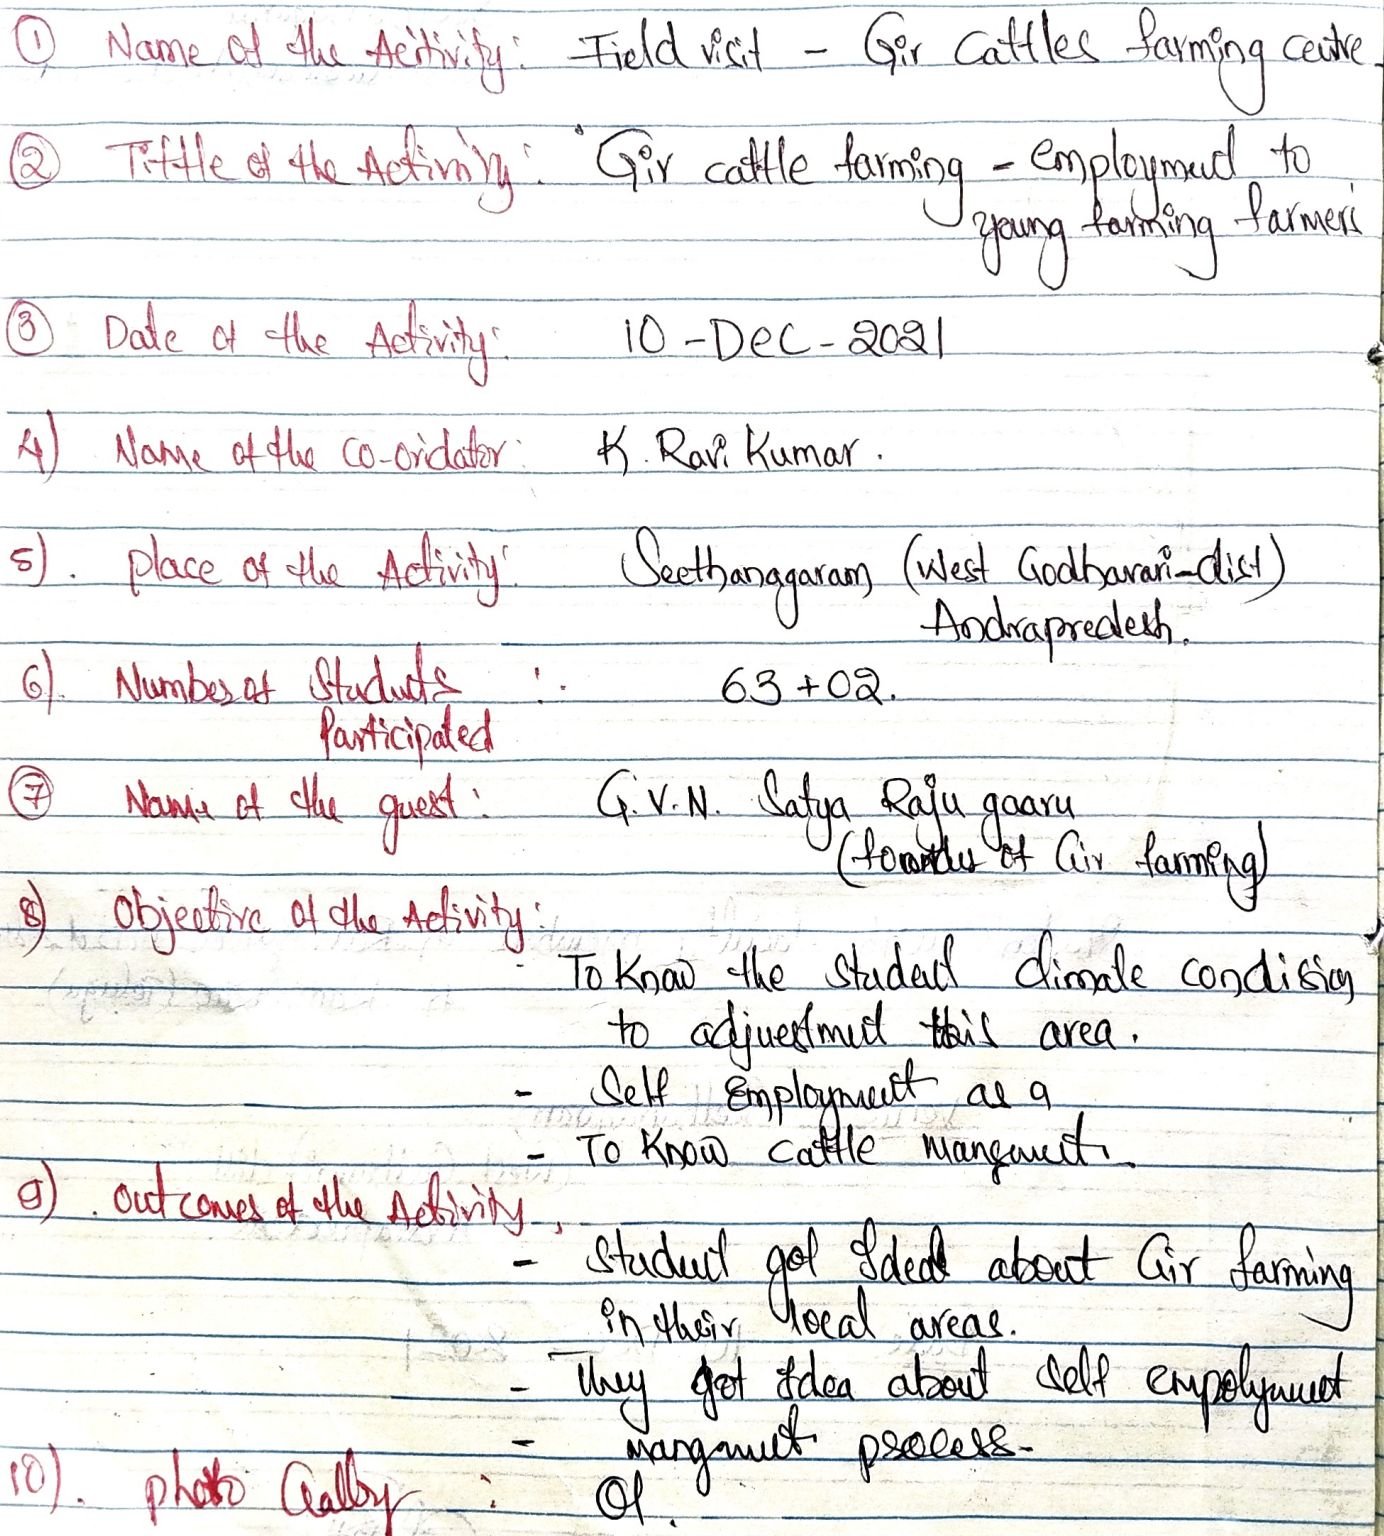 ① Name of the Activity: Field visit - Gir Cattles farming centre.
② Tittle of the Activity: Gir cattle farming - employment to
young farming farmers
③ Date of the Activity: 10-Dec-2021
4) Name of the co-oridator: K. Ravi Kumar.
5). place of the Activity: Seethanagaram (West Godhavari-dist)
Andrapredesh.
6). Number of Students :. 63+02.
Participated
⑦ Name of the guest: G.V.N. Satya Raju gaaru
(founder of Gir farming)
8) Objective of the Activity:
- To Know the student climate condision
to adjuestment this area.
- Self Employment as a
- To Know cattle mangment.
9). outcomes of the Activity,
- Student got Idea about Gir farming
in their local areas.
- They got Idea about self empolyment
- mangment process.
10). photo Gallby : 01.